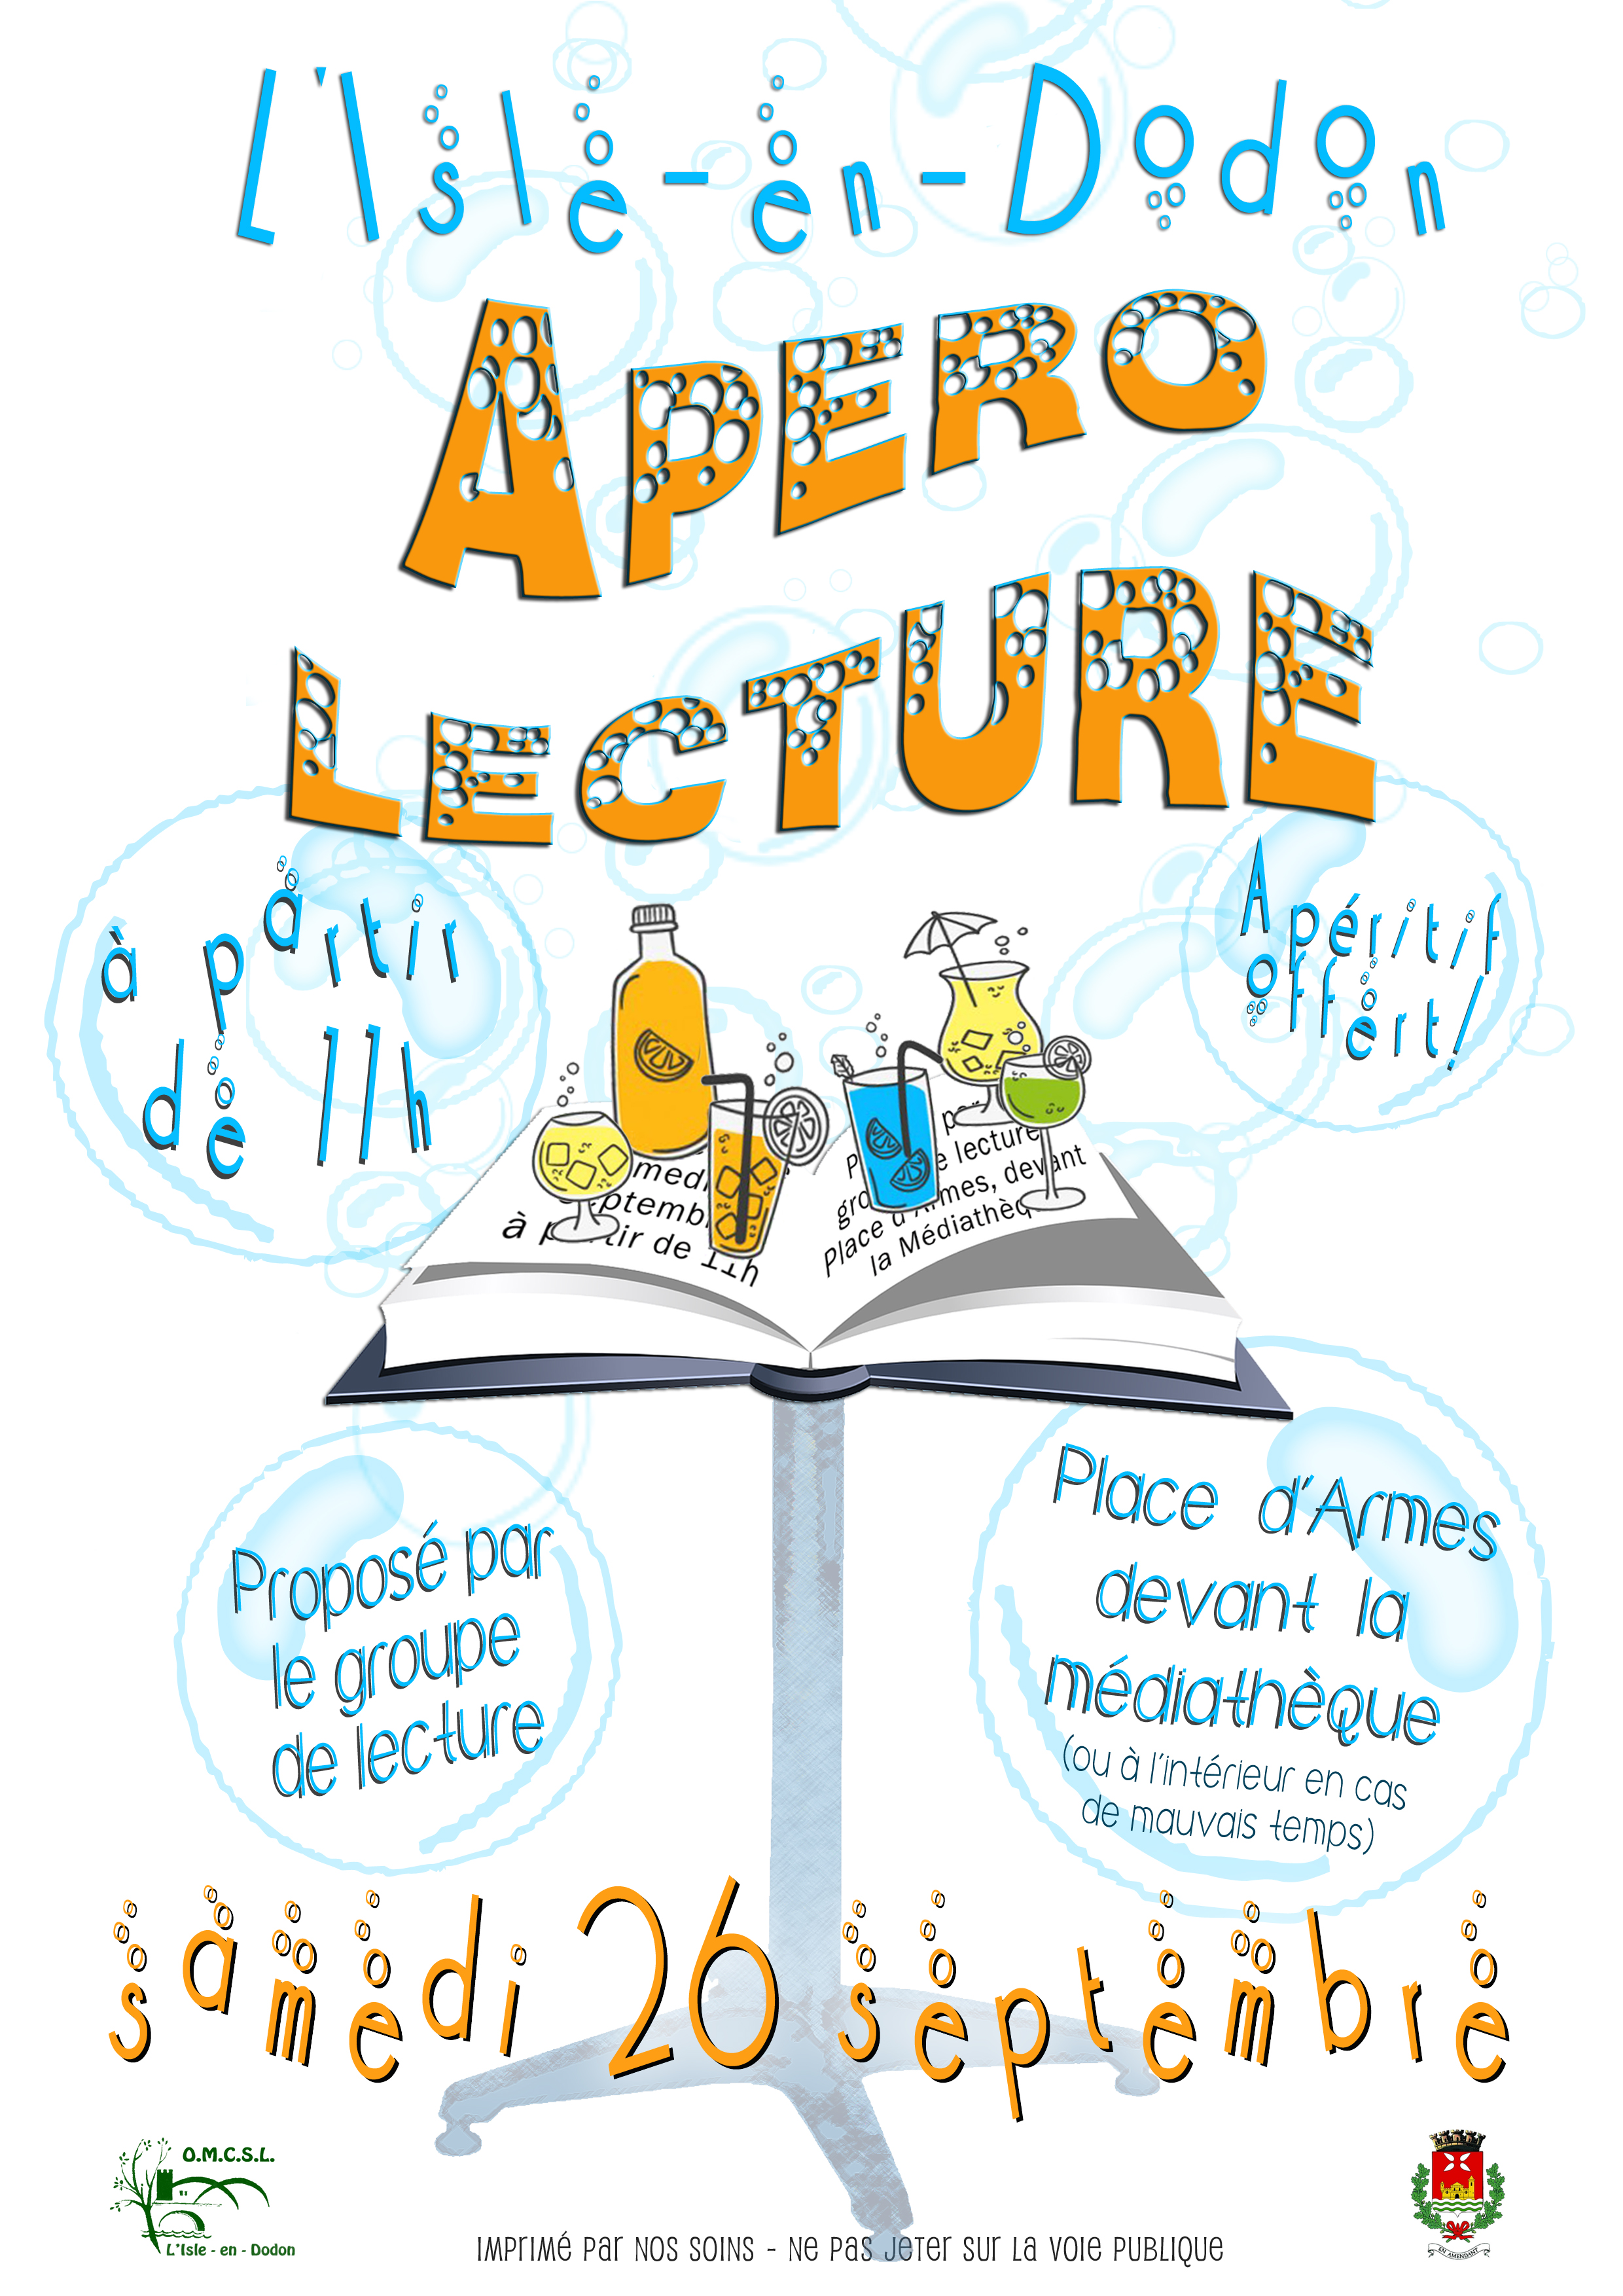 L'Isle-en-Dodon
APERO
LECTURE
à partir
de 11h
Apéritif
offert!
à partir de 11h
lecture
Place d'Armes, devant
la Médiathèq
Proposé par
le groupe
de lecture
Place d'Armes
devant la
médiathèque
(ou à l'intérieur en cas
de mauvais temps)
samedi 26 septembre
O.M.C.S.L.
L'Isle - en - Dodon
EN AMENDANT
IMPRIMé Par NOS SOINS - Ne Pas JeTer sur La VOIe PUBLIQUe